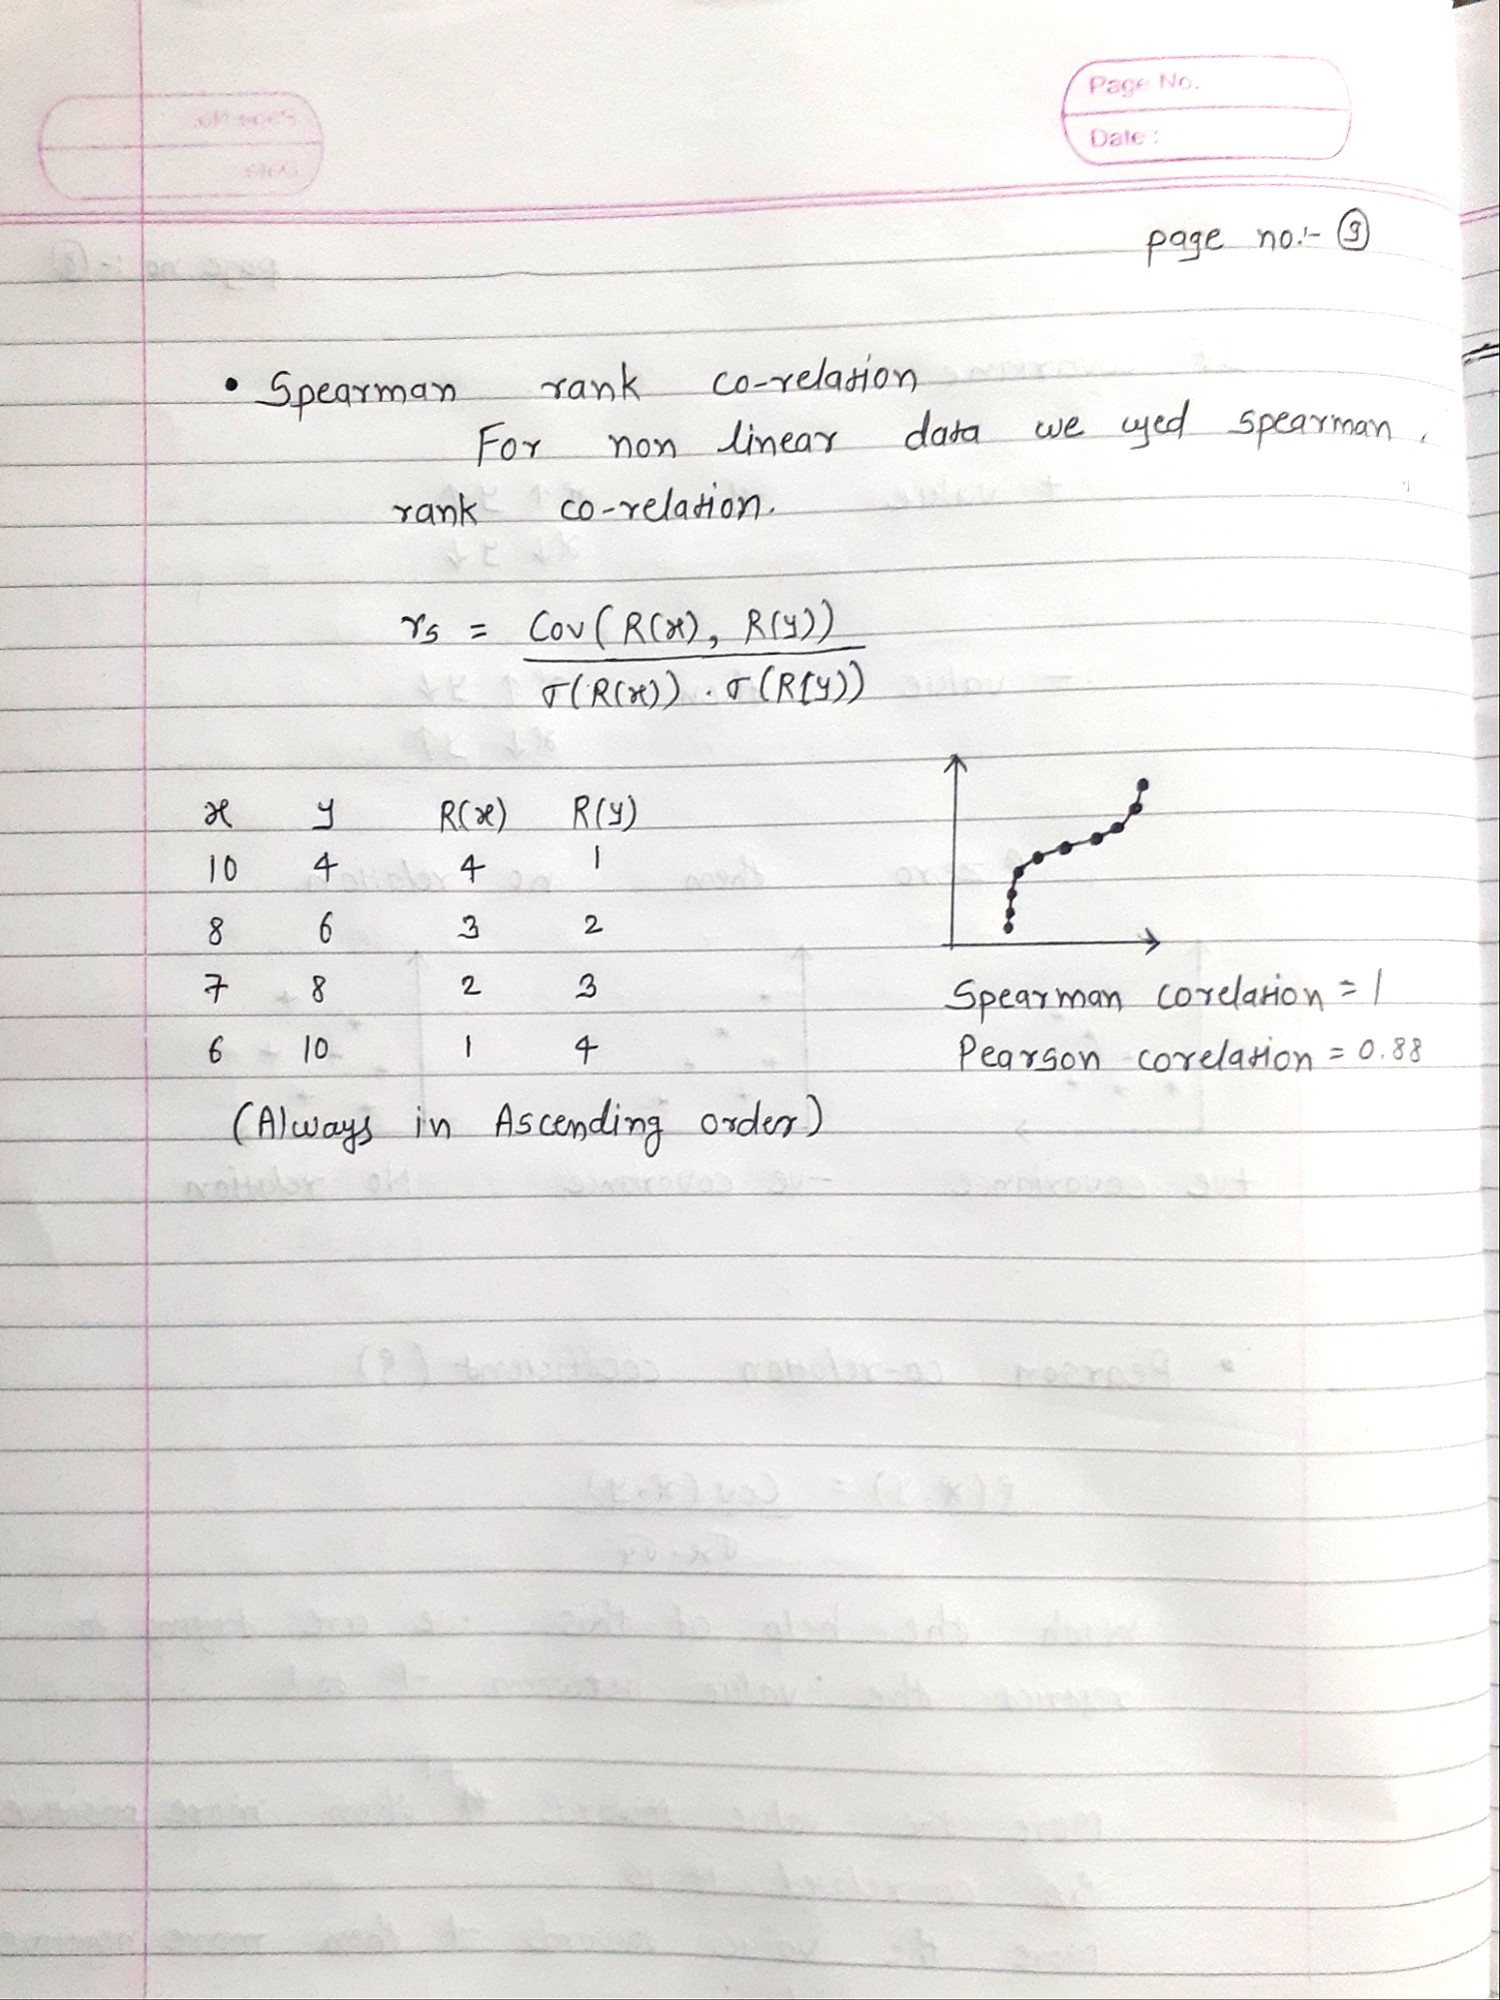 Page No.
Date :
page no:- 9
• Spearman rank co-relation
For non linear data we used spearman
rank co-relation.
rs = Cov(R(x), R(y))
σ(R(x)) . σ(R(y))
x y R(x) R(y)
10 4 4 1
8 6 3 2
7 8 2 3
6 10 1 4
(Always in Ascending order)
Spearman corelation = 1
Pearson corelation = 0.88